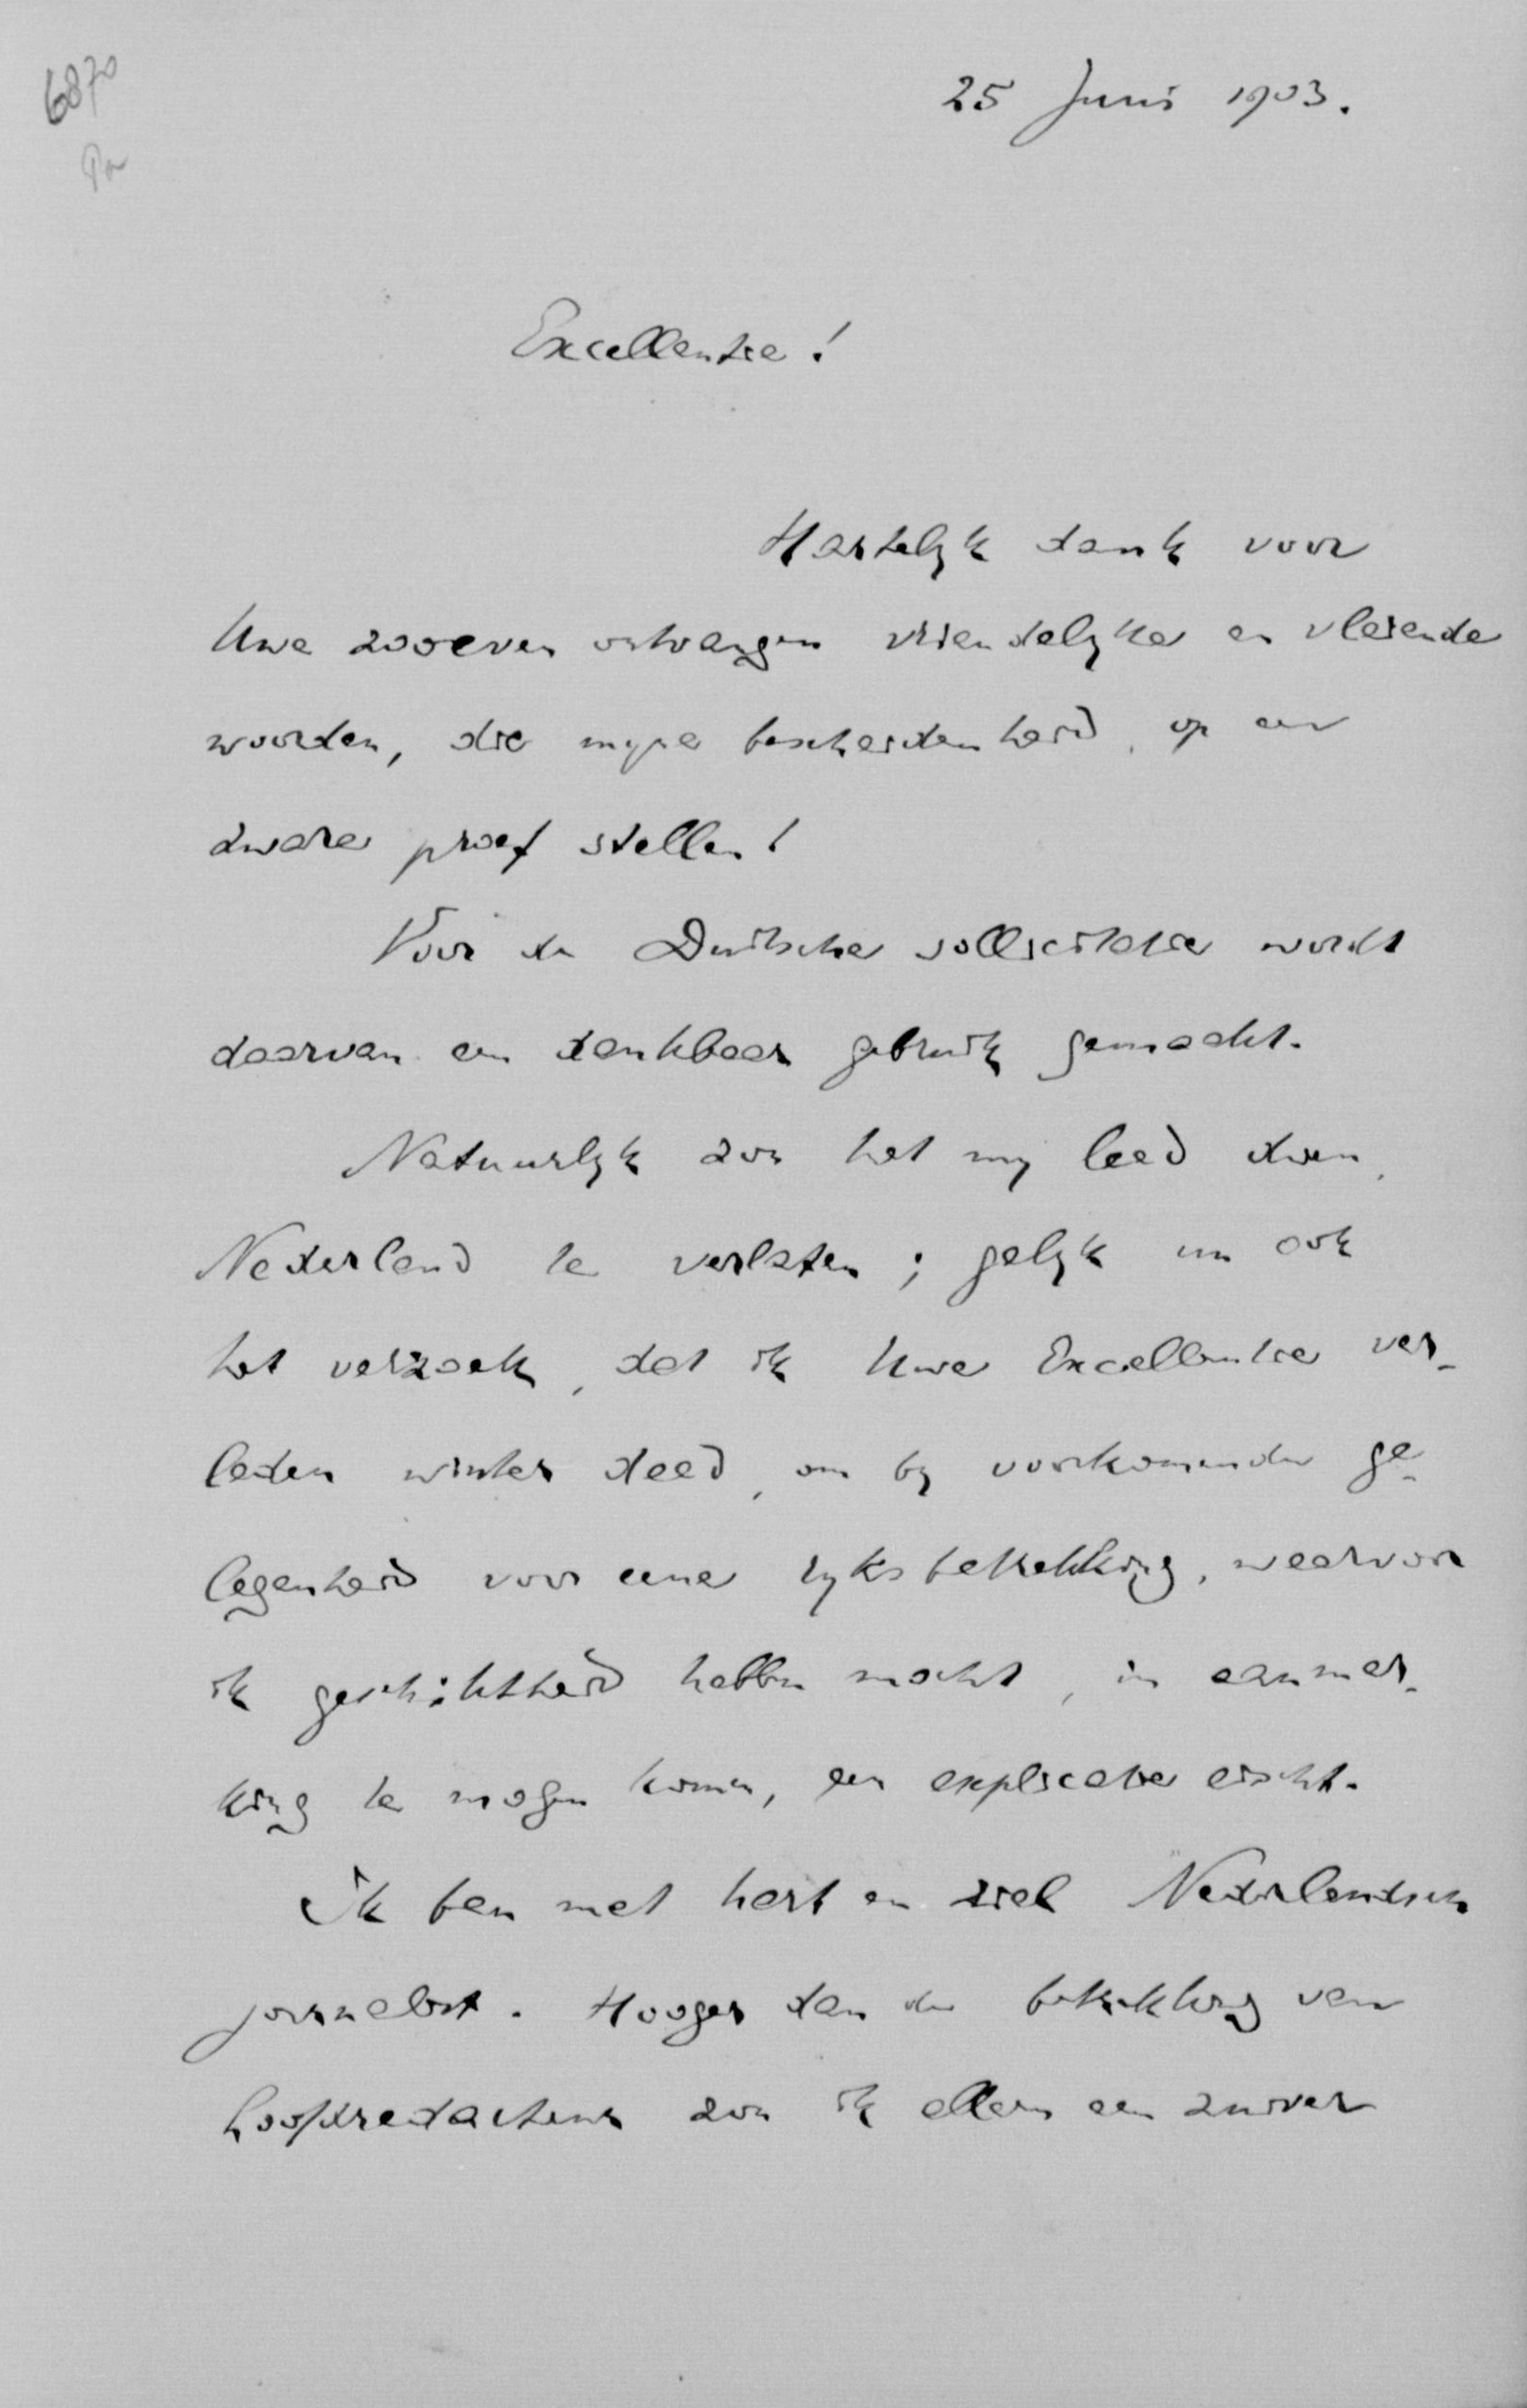 6870
25 Juni 1903.
Excellentie!
Hartelyk dank voor
Uwe zooeven ontvangen vriendelyke en vleiende
woorden, die myne bescheidenheid op een
zware proef stellen!
Voor de Duitsche sollicitatie wordt
daarvan een dankbaar gebruik gemaakt.
Natuurlyk zou het my leed doen,
Nederland te verlaten; gelyk nu ook
het verzoek, dat ik Uwe Excellentie ver-
leden winter deed, om by voorkomende ge-
legenheid voor eene ryksbetrekking, waarvoor
ik geschiktheid hebben mocht, in aanmer-
king te mogen komen, een explicatie eischt.
Ik ben met hart en ziel Nederlandsch
journalist. Hooger dan de betrekking van
hoofdredacteur zou ik alleen een zuiver